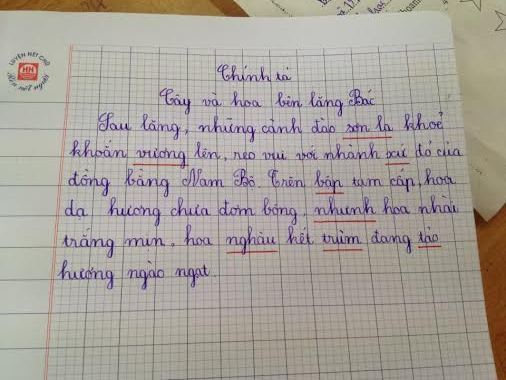 LUYỆN NÉT CHỮ
RÈN NẾT NGƯỜI
Chính tả
Cây và hoa bên lăng Bác
Sau lăng, những cành đào sơn la khoẻ
khoắn vương lên, reo vui với nhành xứ đỏ của
đồng bằng Nam Bộ. Trên bập tam cấp, hoa
dạ hương chưa đơm bông, nhưnh hoa nhài
trắng mịn, hoa nghâu kết trùm đang tảo
hương ngào ngạt.